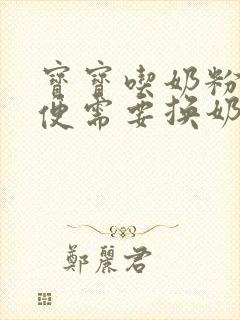 寶寶喫奶粉
便需要換奶
鄭麗君